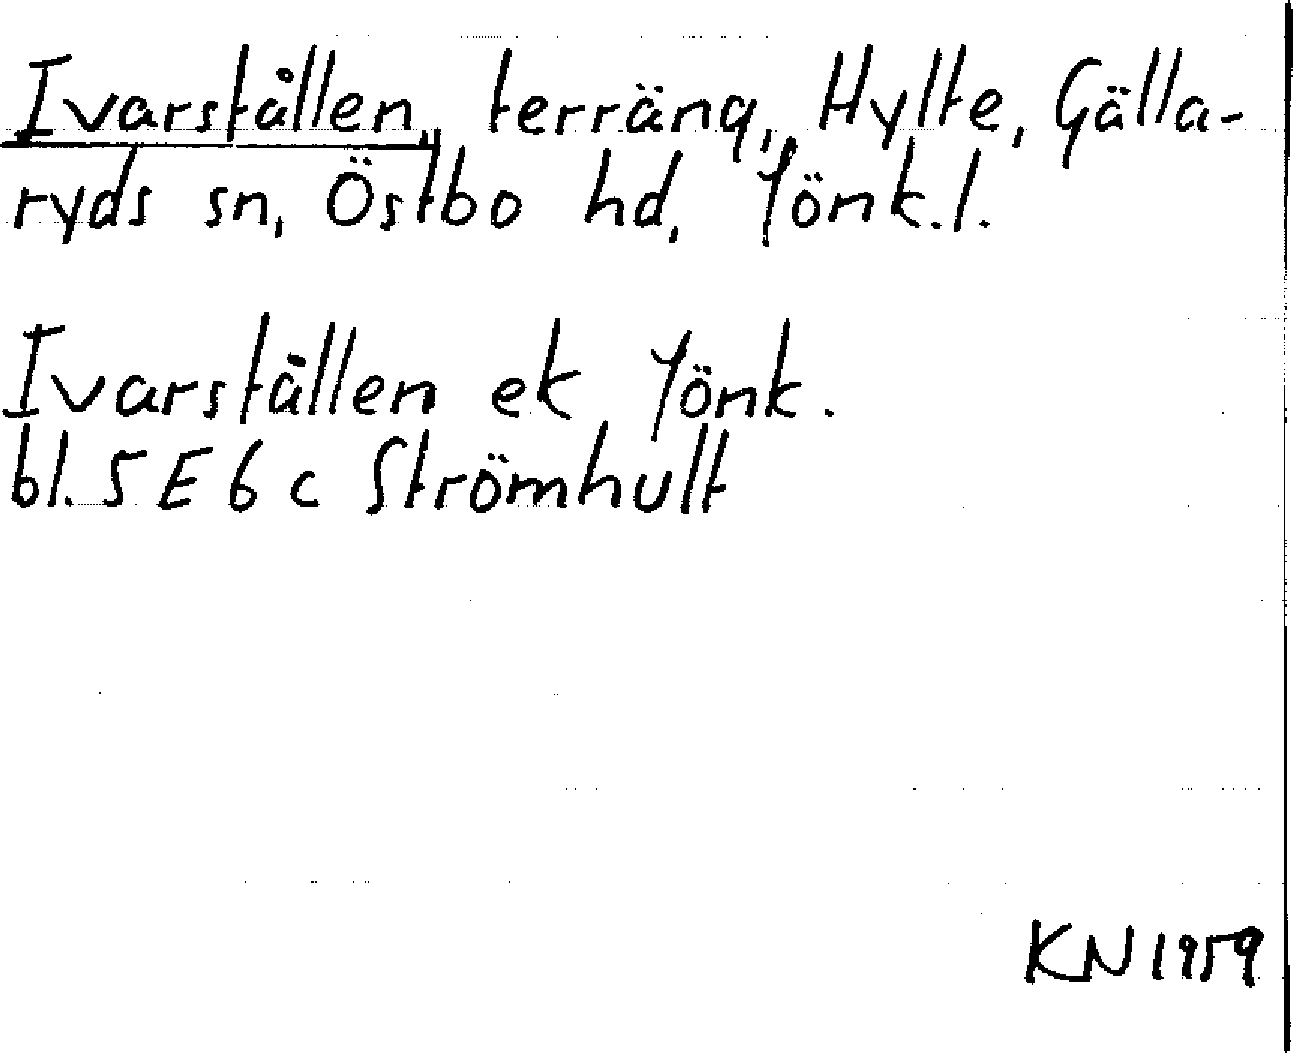 Ivarstållen, terräng, Hylte, Gälla-
ryds sn, Östbo hd, Jönk.l.
Ivarstållen ek Jönk.
bl. 5 E 6 c Strömhult
KN 1959